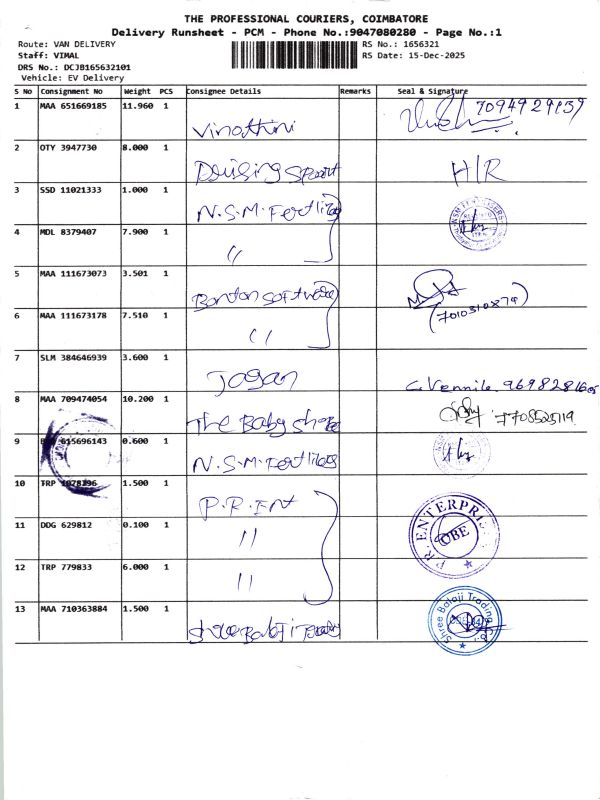 THE PROFESSIONAL COURIERS, COIMBATORE
Delivery Runsheet - PCM - Phone No.:9047080280 - Page No.:1
Route: VAN DELIVERY RS No.: 1656321
Staff: VIMAL RS Date: 15-Dec-2025
DRS No.: DCJB165632101
Vehicle: EV Delivery
S No Consignment No Weight PCS Consignee Details Remarks Seal & Signature
1 MAA 651669185 11.960 1 Vinothini
2 OTY 3947730 8.000 1 H/R
3 SSD 11021333 1.000 1 N.S.M.Fertilize
4 MDL 8379407 7.900 1 "
5 MAA 111673073 3.501 1 Bonton software
6 MAA 111673178 7.510 1 " (7010310879)
7 SLM 384646939 3.600 1 Jagan C. Vennila
8 MAA 709474054 10.200 1 The Baby shope 7708525119
9 615696143 0.600 1 N.S.M.Fertilizes
10 TRP 1.500 1 P.R.Ent
11 DDG 629812 0.100 1 " P.R.ENTERPRIS CBE
12 TRP 779833 6.000 1 "
13 MAA 710363884 1.500 1 Shree Balaji Shree Balaji Trading Co